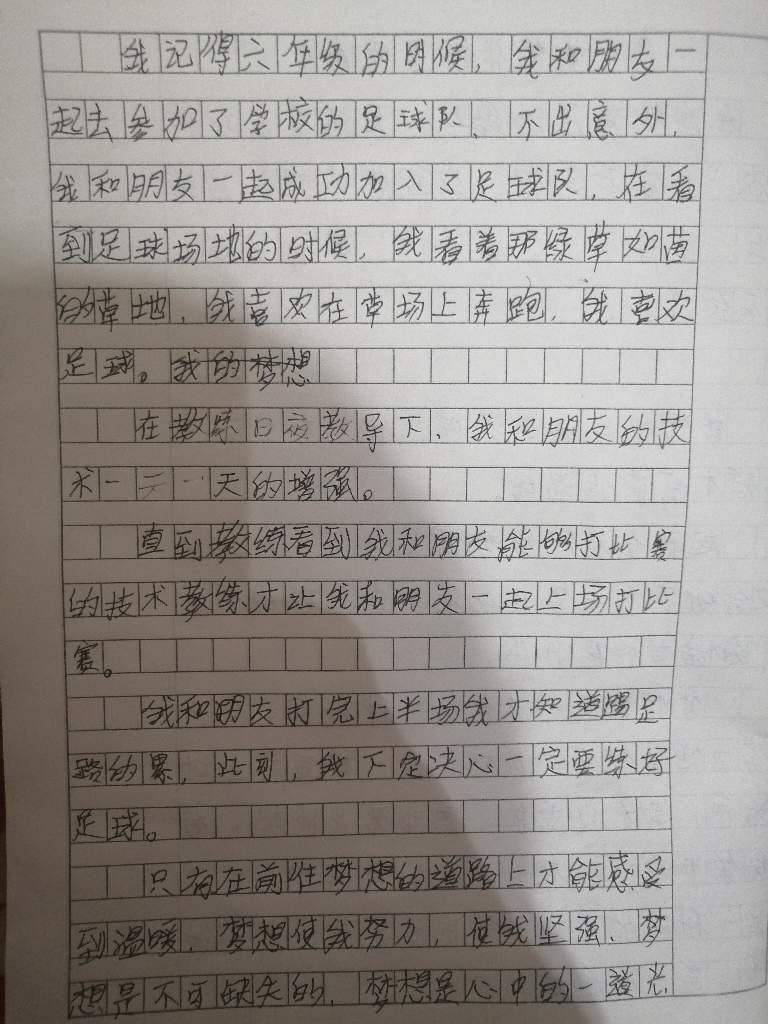 我记得六年级的时候，我和朋友一
起去参加了学校的足球队、不出意外，
我和朋友一起成功加入了足球队，在看
到足球场地的时候，我看着那绿草如茵
的草地，我喜欢在草场上奔跑，我喜欢
足球。我的梦想
在教练日夜教导下，我和朋友的技
术一天一天的增强。
直到教练看到我和朋友能够打比赛
的技术教练才让我和朋友一起上场打比
赛。
我和朋友打完上半场我才知道踢足
路的累，此刻，我下定决心一定要练好
足球。
只有在前往梦想的道路上才能感受
到温暖，梦想使我努力，使我坚强、梦
想是不可缺失的，梦想是心中的一道光